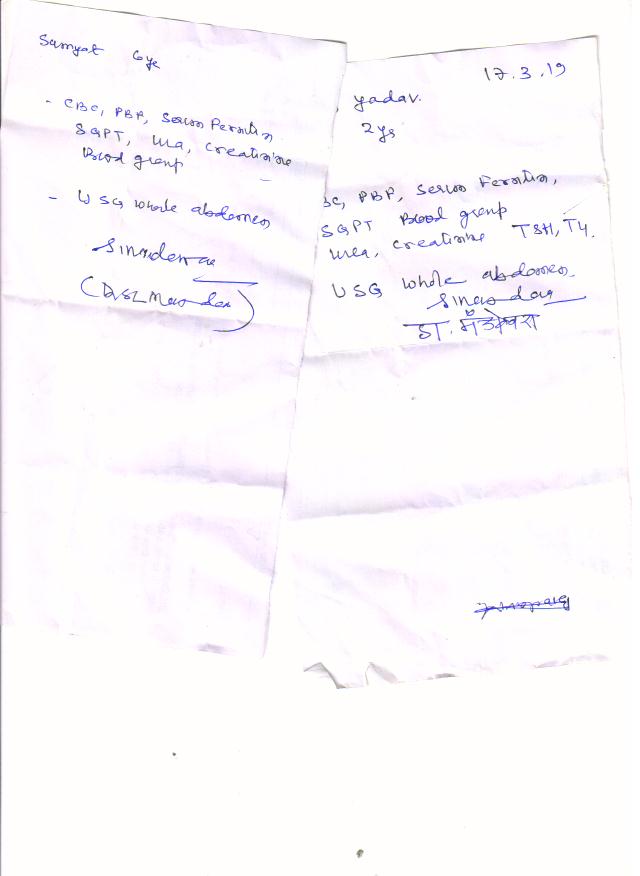 Samyat 6ye
- CBC, PBF, Serum Ferritin
SGPT, urea, creatinine
Blood group
- USG whole abdomen
17.3.19
yadav.
2ys
BC, PBF, Serum Ferritin,
SGPT Blood group
urea, creatinine TSH, T4.
USG whole abdomen
डा.